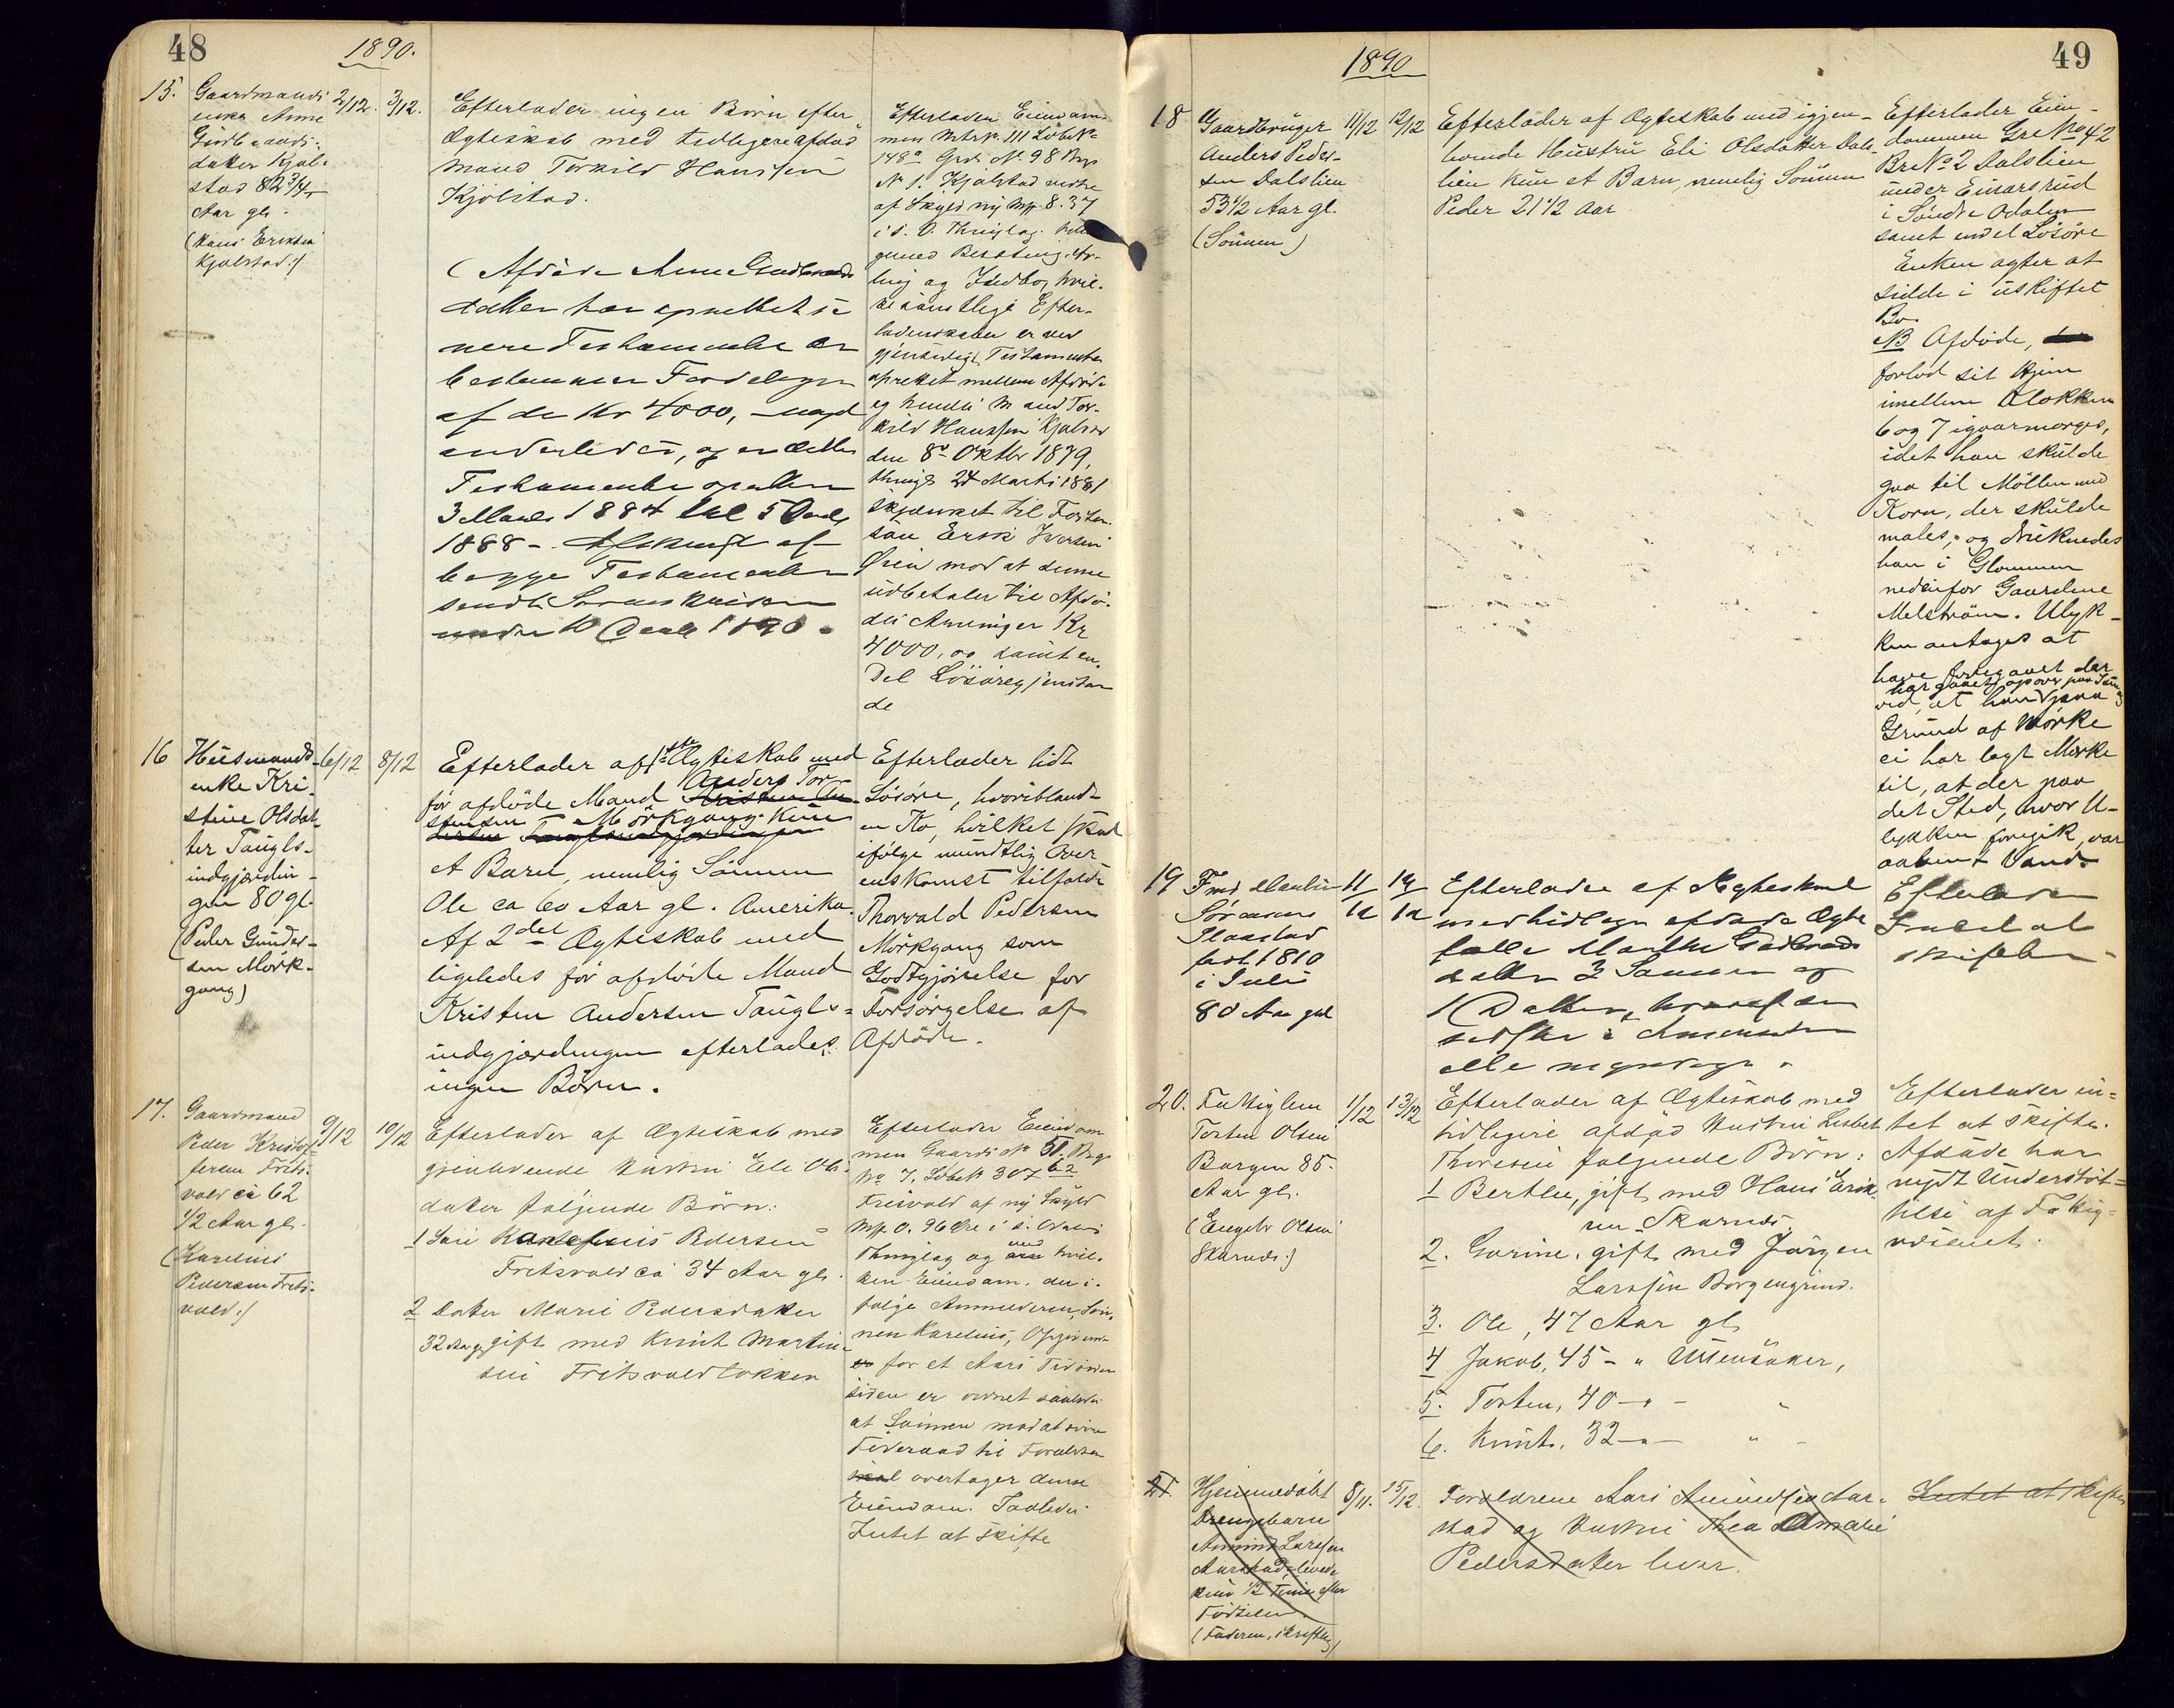 48
1890.
15.
Gaardmands
enke Anne
Gudbrands-
datter Kjøl-
stad 82 3/4
Aar gl.
(Hans Eriksen
Kjølstad.)
2/12.
3/12.
Efterlader ingen Börn efter
Ægteskab med tidligere afdød
Mand Torkild Hanssen
Kjölstad.
(Afdøde Anne Gudbrands
datter har oprettet se
nere Testamente
bestemmer Fordelingen
af de Kr 4000,
anderledes, og er dette
Testamente
3 Marts 1884 5
1888 - Afskrift af
begge Testamenter
sendt Sorenskriveren
under 10 1890.
Efterlader Eiendom
men Mtr№ 111 Löbe№
148a Grds № 98 Brgs
№ 1. Kjølstad
af Skyld ny Mp. 8.37
i S. O. Thinglag.
gemed Besætning, Av-
ling og Indbo, hvil-
ke samtlige Efter-
ladenskaber er ved
gjensidigt Testamente
oprettet mellem Afdøde
og hendes Mand Tor-
kild Hanssen Kjølstad
den 8de Oktbr 1879,
thingl. 24 Marts 1881
skjænket til Foster-
søn Erik Iversen
mod at denne
udbetaler til Afdø-
des Arvinger Kr
4000,00 samt en
Del Lösøregjenstan
de
16
Husmands-
enke Kri-
stine Olsdat-
ter Taugls-
indgjærdin-
gen 80 gl.
(Peder Gunder-
sen Mörk-
gang)
6/12
8/12
Efterlader af 1ste Ægteskab med
för afdöde Mand Anders Tor-
stensen Mörkgang kun
et Barn, nemlig Sönnen
Ole ca 60 Aar gl. Amerika.
Af 2det Ægteskab med
ligeledes för afdöde Mand
Kristen Andersen Taugls-
indgjærdingen efterlades
ingen Börn.
Efterlader lidt
Lösöre, hvoriblandt
en Ko, hvilket skal
ifölge mundtlig Over
enskomst tilfalde
Thorvald Pedersen
Mörkgang som
Godtgjörelse for
Forsörgelse af
Afdöde.
17.
Gaardmand
Peder Kristof-
fersen Frits-
vold ca 62
1/2 Aar gl.
(Karelius
Pedersen Frits-
vold.)
9/12
10/12
Efterlader af Ægteskab med
gjenlevende Hustru Eli Ols-
datter følgende Börn:
1 Søn Karelius Pedersen
Fritsvold ca 34 Aar gl.
2 Datter Marie Pedersdatter
32 Aar gl gift med Knut Martin-
sen Fritsvoldlökken
Efterlader Eiendom
men Gaards № 51. Brgs
№ 7. Löbe№ 307 62
Fritsvold af ny Skyld
Mp 0. 96 Øre i S. Odalens
Thinglag og med hvil-
ken Eiendom, der i-
følge Anmelderen, Søn-
nen Karelius, Opgivende
for et Aars Tid
siden er ordnet saaledes
at Sønnen mod at svare
Föderaad til Forældrene
overtager denne
Eiendom. Saaledes
Intet at skifte
49
1890
18
Gaardbruger
Anders Peder-
sen Dalslien
53 1/2 Aar gl.
(Sönnen)
11/12
12/12
Efterlader af Ægteskab med igjen-
levende Hustru Eli Olsdatter Dals-
lien kun et Barn, nemlig Sönnen
Peder 21 1/2 Aar
Efterlader Eien-
dommen Gre No 42
Bre No 2 Dalslien
under Einarsrud
i Söndre Odalen
samt endel Lösöre
Enken agter at
sidde i uskiftet
Bo.
NB Afdöde,
forlod sit Hjem
imellem Klokken
6 og 7 igaarmorges,
idet han skulde
gaa til Möllen med
Korn, der skulde
males, og druknedes
han i Glommen
nedenfor Gaardene
Melström. Ulyk-
ken antages at
have foregaaet der
ved, at han paa
Grund af Mörke
ei har lagt Mærke
til, at der paa
det Sted, hvor U-
lykken foregik, var
aabent Vand.
19
Sørensen
Plaastad
født 1810
i Juli
80 Aar gal
11/12
12/12
Efterlader af Ægteskab
med tidligere afdøde Ægte
fælle Marthe Gudbrands
datter 3 Sønner og
1 Datter, hvoraf den
sidste i Amerika
Efterlader
Intet at
skifte
20.
Fattiglem
Torsten Olsen
Borgen 85.
Aar gl.
(Engebr Olsen
Skarnes.)
1/12
13/12
Efterlader af Ægteskab med
tidligere afdød Hustru Lisbet
Thorsen følgende Börn:
1 Berthe, gift med Hans Erik-
sen Skarnes.
2. Gurine, gift med Jörgen
Larssen Borgengrind.
3. Ole, 47 Aar gl
4 Jakob, 45 - " Ullensaker,
5. Torsten, 40 - " - "
6. Knut, 32 - " - " -
Efterlader in-
tet at skifte.
Afdøde har
nydt Understöt-
telse af Fattig-
væsenet.
21.
Hjemmedøbt
Drengebarn
Amund Larssen
Aarstad, levede
kun 1/2 Time efter
Fødselen.
(Faderen, skriftlig)
8/11.
15/12.
Forældrene Lars Amundsen Aar-
stad og Hustru Thea Amalie
Pedersdatter lever.
Intet at skifte